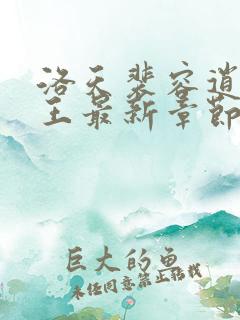 洛天裴容逍
王最新章节
巨大的鱼
未经同意禁止转载